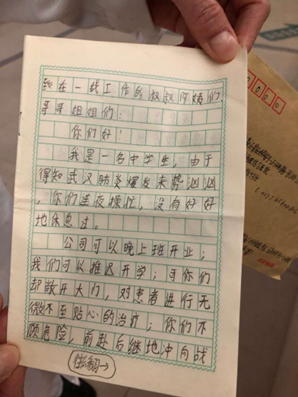 致在一线工作的叔叔阿姨们,
哥哥姐姐们:
你们好!
我是一名中学生,由于
得知武汉肺炎爆发来势汹汹
,你们连夜操忙,没有好好
地休息过。
公司可以晚上班开业;
我们可以推迟开学;可你们
却敞开大门,对患者进行无
微不至贴心的治疗;你们不
顾危险,前赴后继地冲向战
(背翻→)